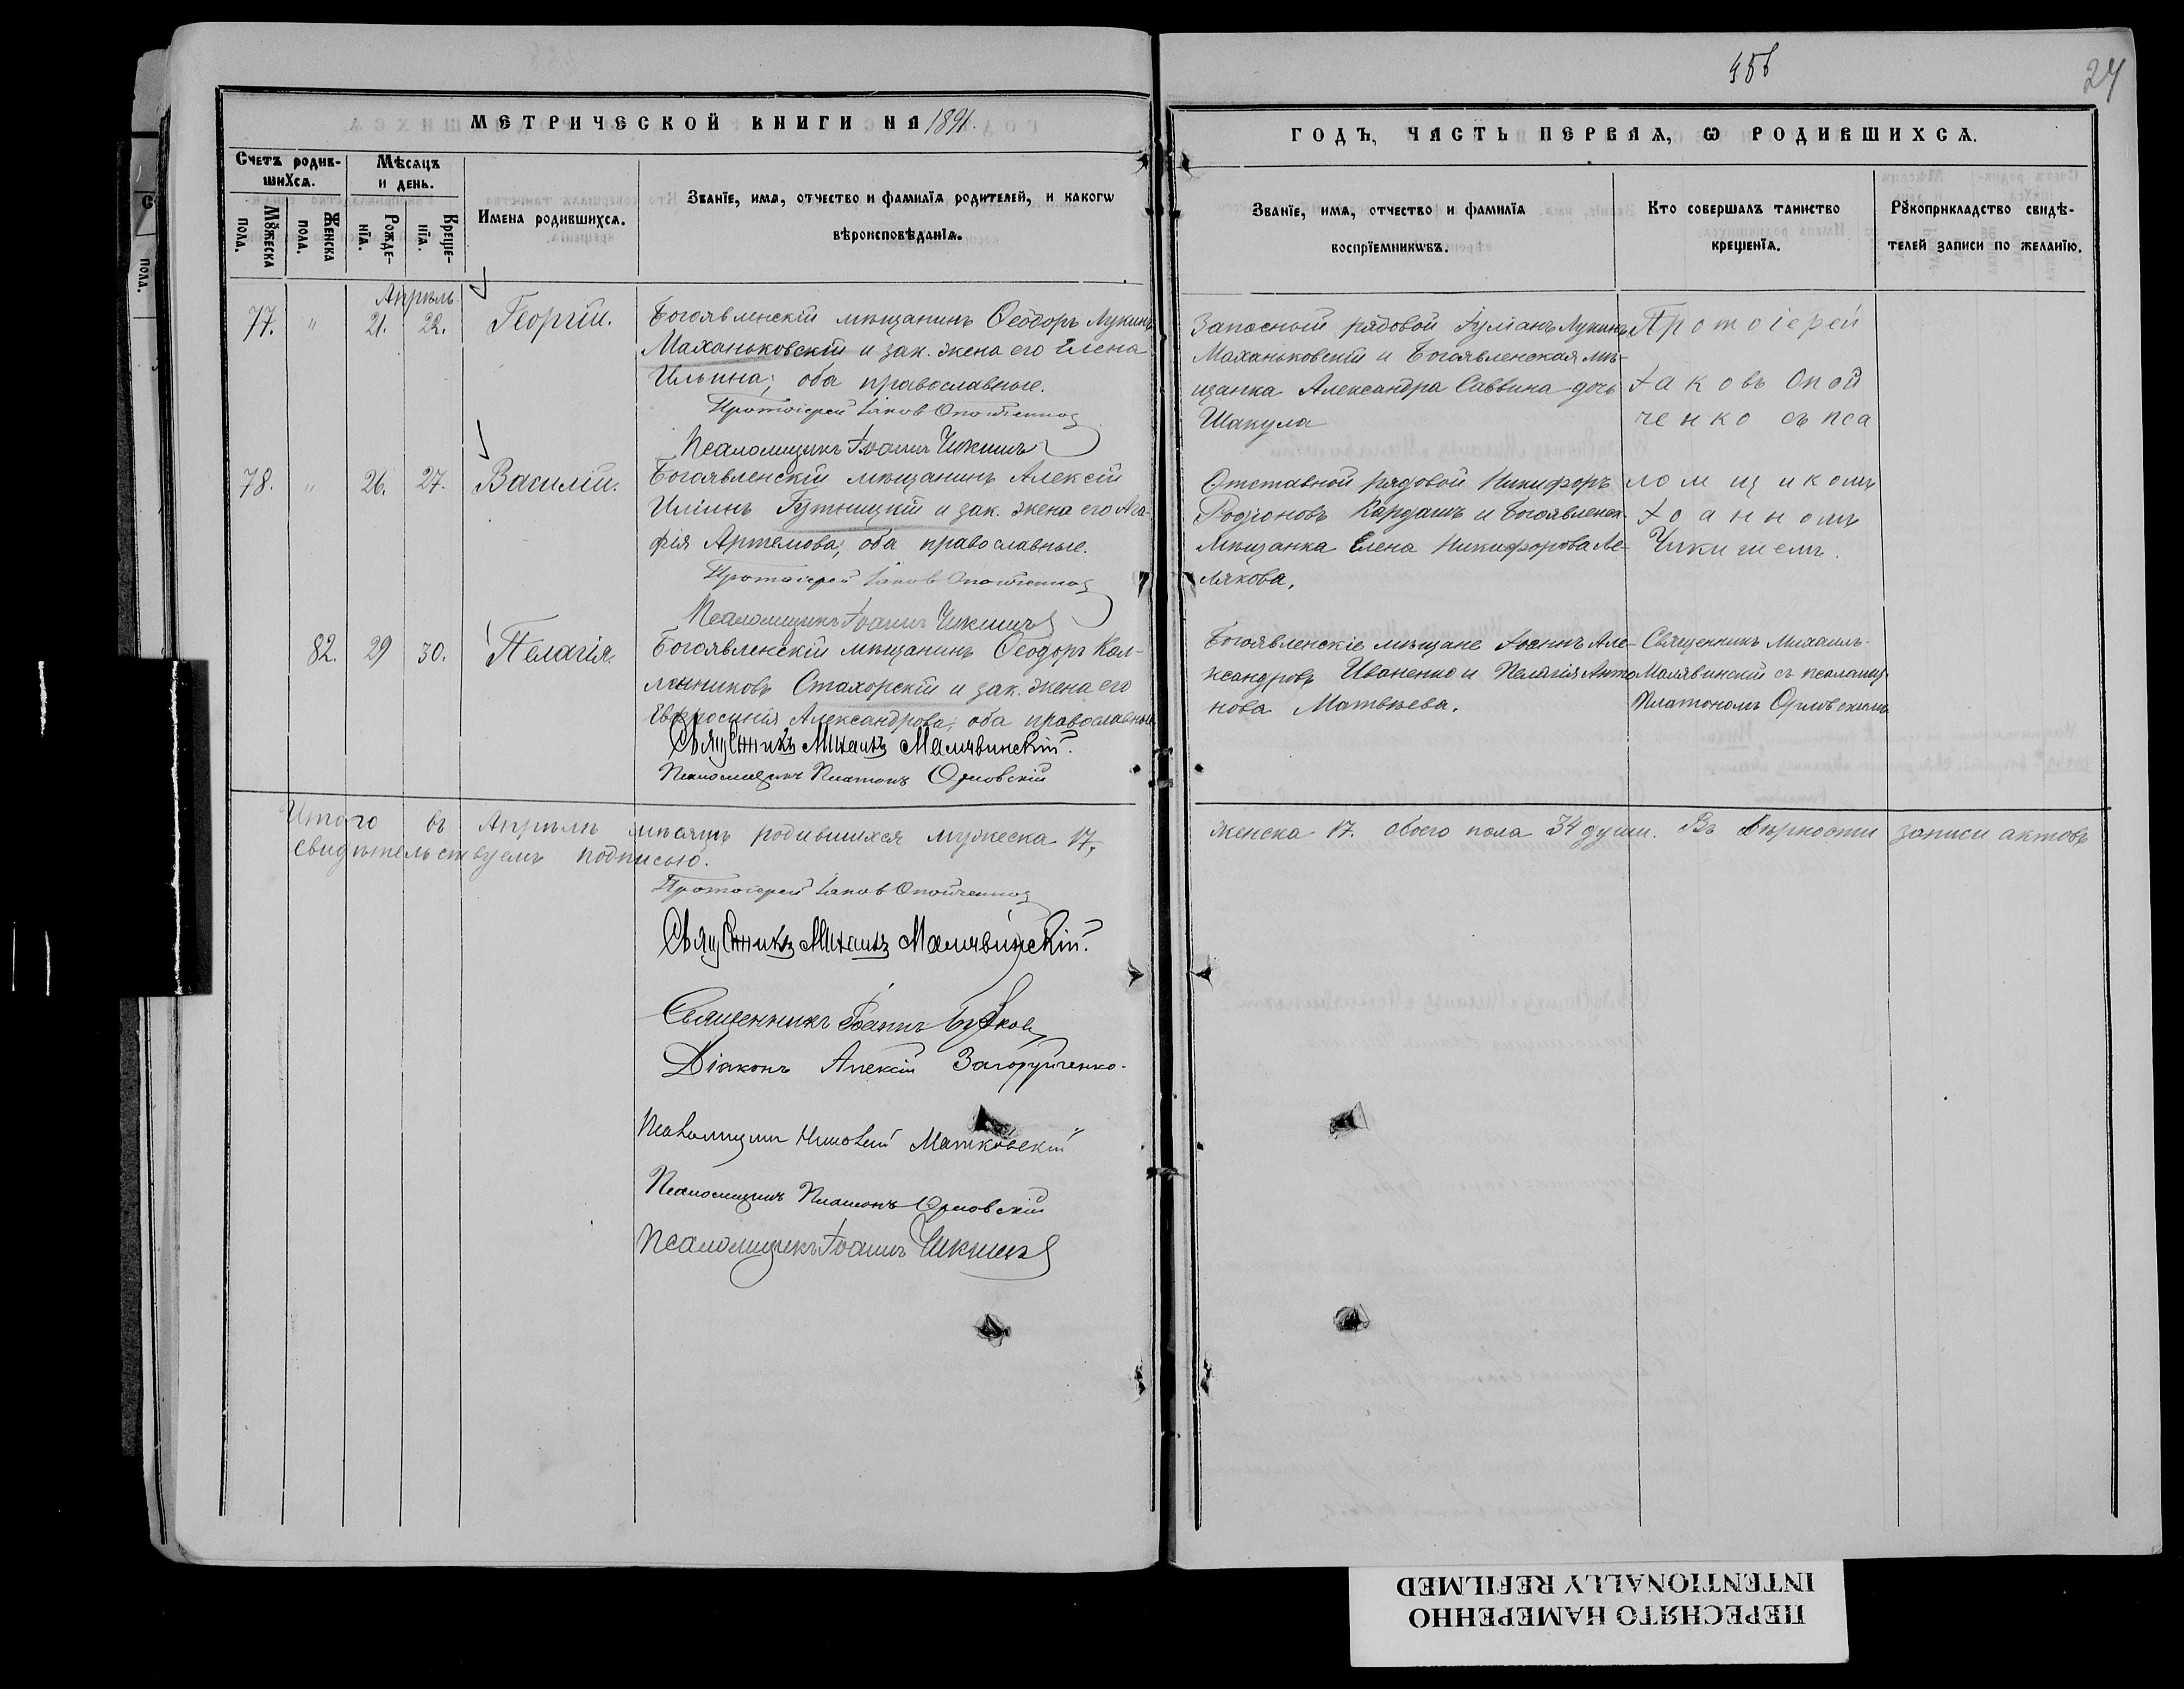 456
24
МЕТРИЧЕСКОЙ КНИГИ НА 1891.
ГОДЪ, ЧАСТЬ ПЕРВАЯ, Ѡ РОДИВШИХСѦ.
Счетъ родив-
шихсѧ.
Мꙋжеска пола.
Женска пола.
Мѣсѧцъ
и день.
Рожде-
нїѧ.
Креще-
нїѧ.
Имена родившихсѧ.
Званїе, имѧ, отчество и фамилїѧ родителей, и какогѡ
вѣроисповѣданїѧ.
Званїе, имѧ, отчество и фамилїѧ
воспрїемникѡвъ.
Кто совершалъ таинство
крещенїѧ.
Рꙋкоприкладство свидѣ-
телей записи по желанїю.
Апрѣль
77. " 21. 22. Георгій.
Богоявленскій мѣщанинъ Ѳеодоръ Лукинъ
Маханьковскій и зак. жена его Елена
Ильина; оба православные.
Протоіерей Іаковъ Опойченко
Псаломщикъ Іоаннъ Чикишъ
Запасный рядовой Іуліанъ Лукинъ
Маханьковскій и Богоявленская мѣ-
щанка Александра Саввина дочь
Шакула
Протоіерей
Іаковъ Опой
ченко съ пса
ломщикомъ
Іоанномъ
Чикишемъ.
78. " 26. 27. Василій.
Богоявленскій мѣщанинъ Алексій
Иліинъ Гутницкій и зак. жена его Ага-
фія Артемова; оба православные.
Протоіерей Іаковъ Опойченко
Псаломщикъ Іоаннъ Чикишъ
Отставной рядовой Никифоръ
Родіоновъ Кардашъ и Богоявленск.
мѣщанка Елена Никифорова Ле-
лякова.
82. 29 30. Пелагія.
Богоявленскій мѣщанинъ Ѳеодоръ Кал-
линиковъ Стахорскій и зак. жена его
Евфросинія Александрова; оба православные
Священникъ Михаилъ Малявинскій.
Псаломщикъ Платонъ Орловскій
Богоявленскіе мѣщане Іоаннъ Але-
ксандровъ Иваненко и Пелагія Анто
нова Матвѣева.
Священникъ Михаилъ
Малявинскій съ псаломщ.
Платономъ Орловскимъ
Итого въ Апрѣлѣ мѣсяцѣ родившихся мужеска 17,
женска 17. обоего пола 34 души. Въ вѣрности записи актовъ
свидѣтельствуемъ подписью.
Протоіерей Іаковъ Опойченко
Священникъ Михаилъ Малявинскій.
Священникъ Іоаннъ
Діаконъ Алексій Загоруйченко.
Псаломщикъ Николай Матковскій
Псаломщикъ Платонъ Орловскій
Псаломщикъ Іоаннъ Чикишъ
ПЕРЕСНЯТО НАМЕРЕННО
INTENTIONALLY REFILMED